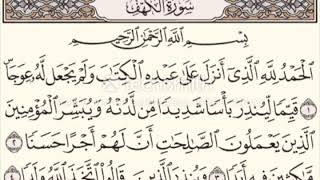 سُورَةُ الْكَهْفِ
بِسْمِ اللَّهِ الرَّحْمَٰنِ الرَّحِيمِ
الْحَمْدُ لِلَّهِ الَّذِي أَنزَلَ عَلَىٰ عَبْدِهِ الْكِتَابَ وَلَمْ يَجْعَل لَّهُ عِوَجَا ۜ
١ قَيِّمًا لِّيُنذِرَ بَأْسًا شَدِيدًا مِّن لَّدُنْهُ وَيُبَشِّرَ الْمُؤْمِنِينَ
الَّذِينَ يَعْمَلُونَ الصَّالِحَاتِ أَنَّ لَهُمْ أَجْرًا حَسَنًا ٢
مَّاكِثِينَ فِيهِ أَبَدًا ٣ وَيُنذِرَ الَّذِينَ قَالُوا اتَّخَذَ اللَّهُ وَلَدًا ٤